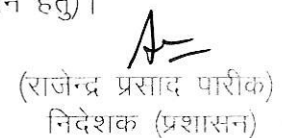 हेतु)।
(राजेन्द्र प्रसाद पारीक)
निदेशक (प्रशासन)